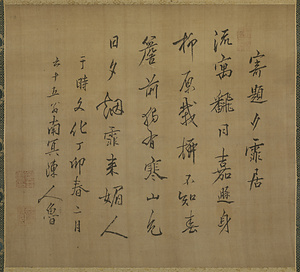 寄題夕霏居
流寓難同嘉遯身
柳原栽不知春
簷前猶有寒山色
日夕烟霏来媚人
于時文化丁卯春二月
六十五翁南冥陳人魯